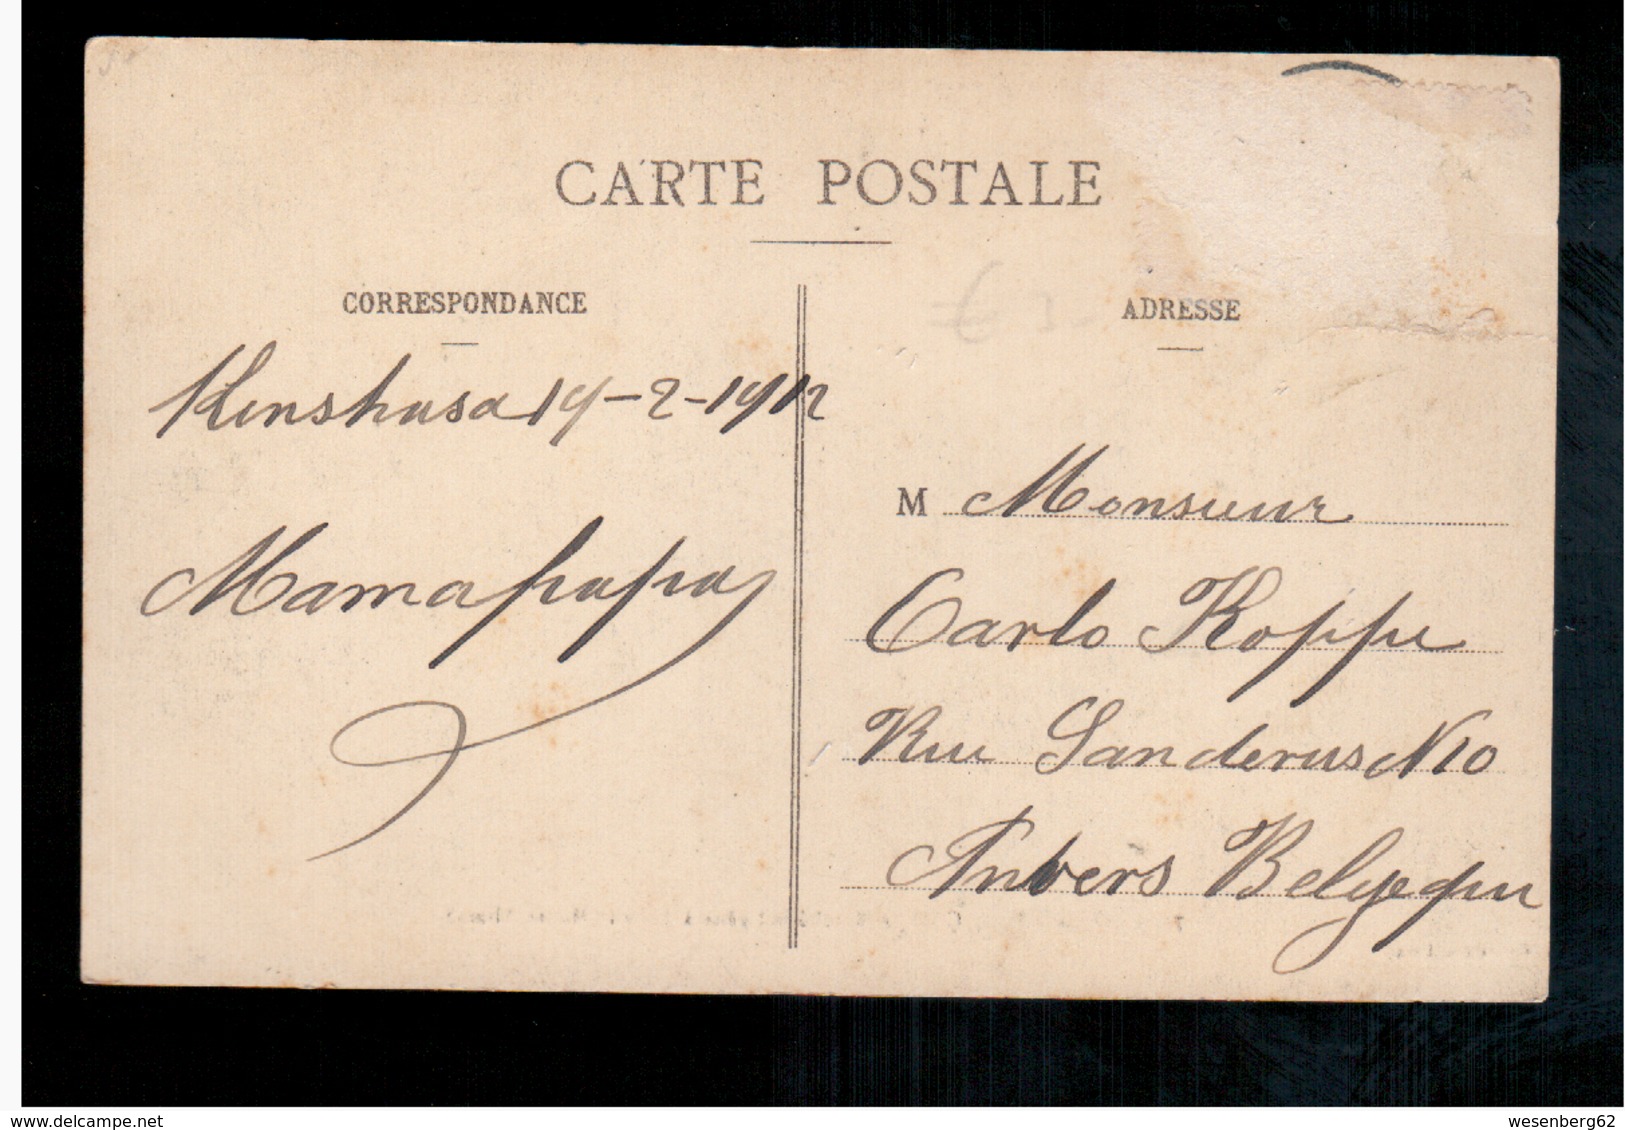 CARTE POSTALE
CORRESPONDANCE
Kinshasa 19-2-1912
Mamapapa
ADRESSE
M Monsieur
Carlo Koppe
Rue Sanderus N10
Anvers Belgequi
www.delcampe.net
wesenberg62